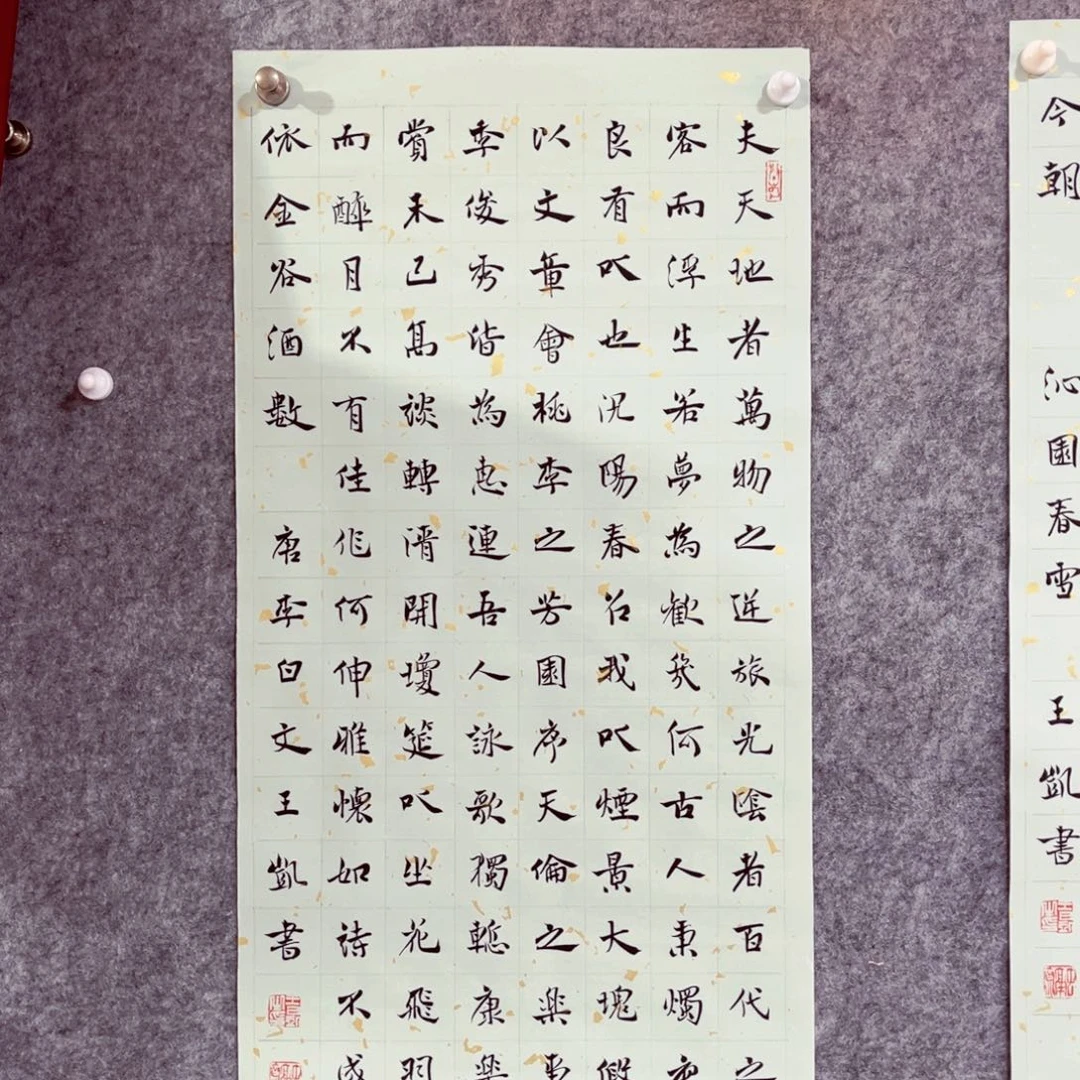 夫天地者萬物之逆旅光陰者百代之
客而浮生若夢為歡幾何古人秉燭夜
良有以也況陽春召我以煙景大塊假
以文章會桃李之芳園序天倫之樂事
季俊秀皆為惠連吾人詠歌獨慙康樂
賞未已高談轉清開瓊筵以坐花飛羽
而醉月不有佳作何伸雅懷如詩不成
依金谷酒數 唐李白文王凱書
今朝 沁園春雪 王凱書